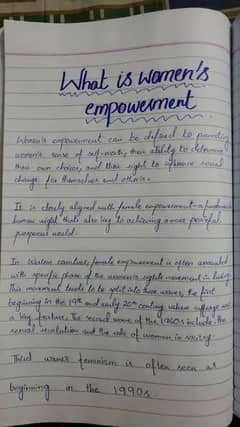 What is women's
empowerment
Women's empowerment can be defined to promoting
women's sense of self-worth, their ability to determine
their own choices, and their right to influence social
change for themselves and others.
It is closely aligned with female empowerment – a fundamental
human right that's also key to achieving a more peaceful,
prosperous world.
In Western countries, female empowerment is often associated
with specific phase of the women's rights movement in history.
This movement tends to be split into three waves, the first
beginning in the 19th and early 20th century where suffrage was
a key feature. The second wave of the 1960s include the
sexual revolution and the role of women in society.
Third wave feminism is often seen as
beginning in the 1990s.